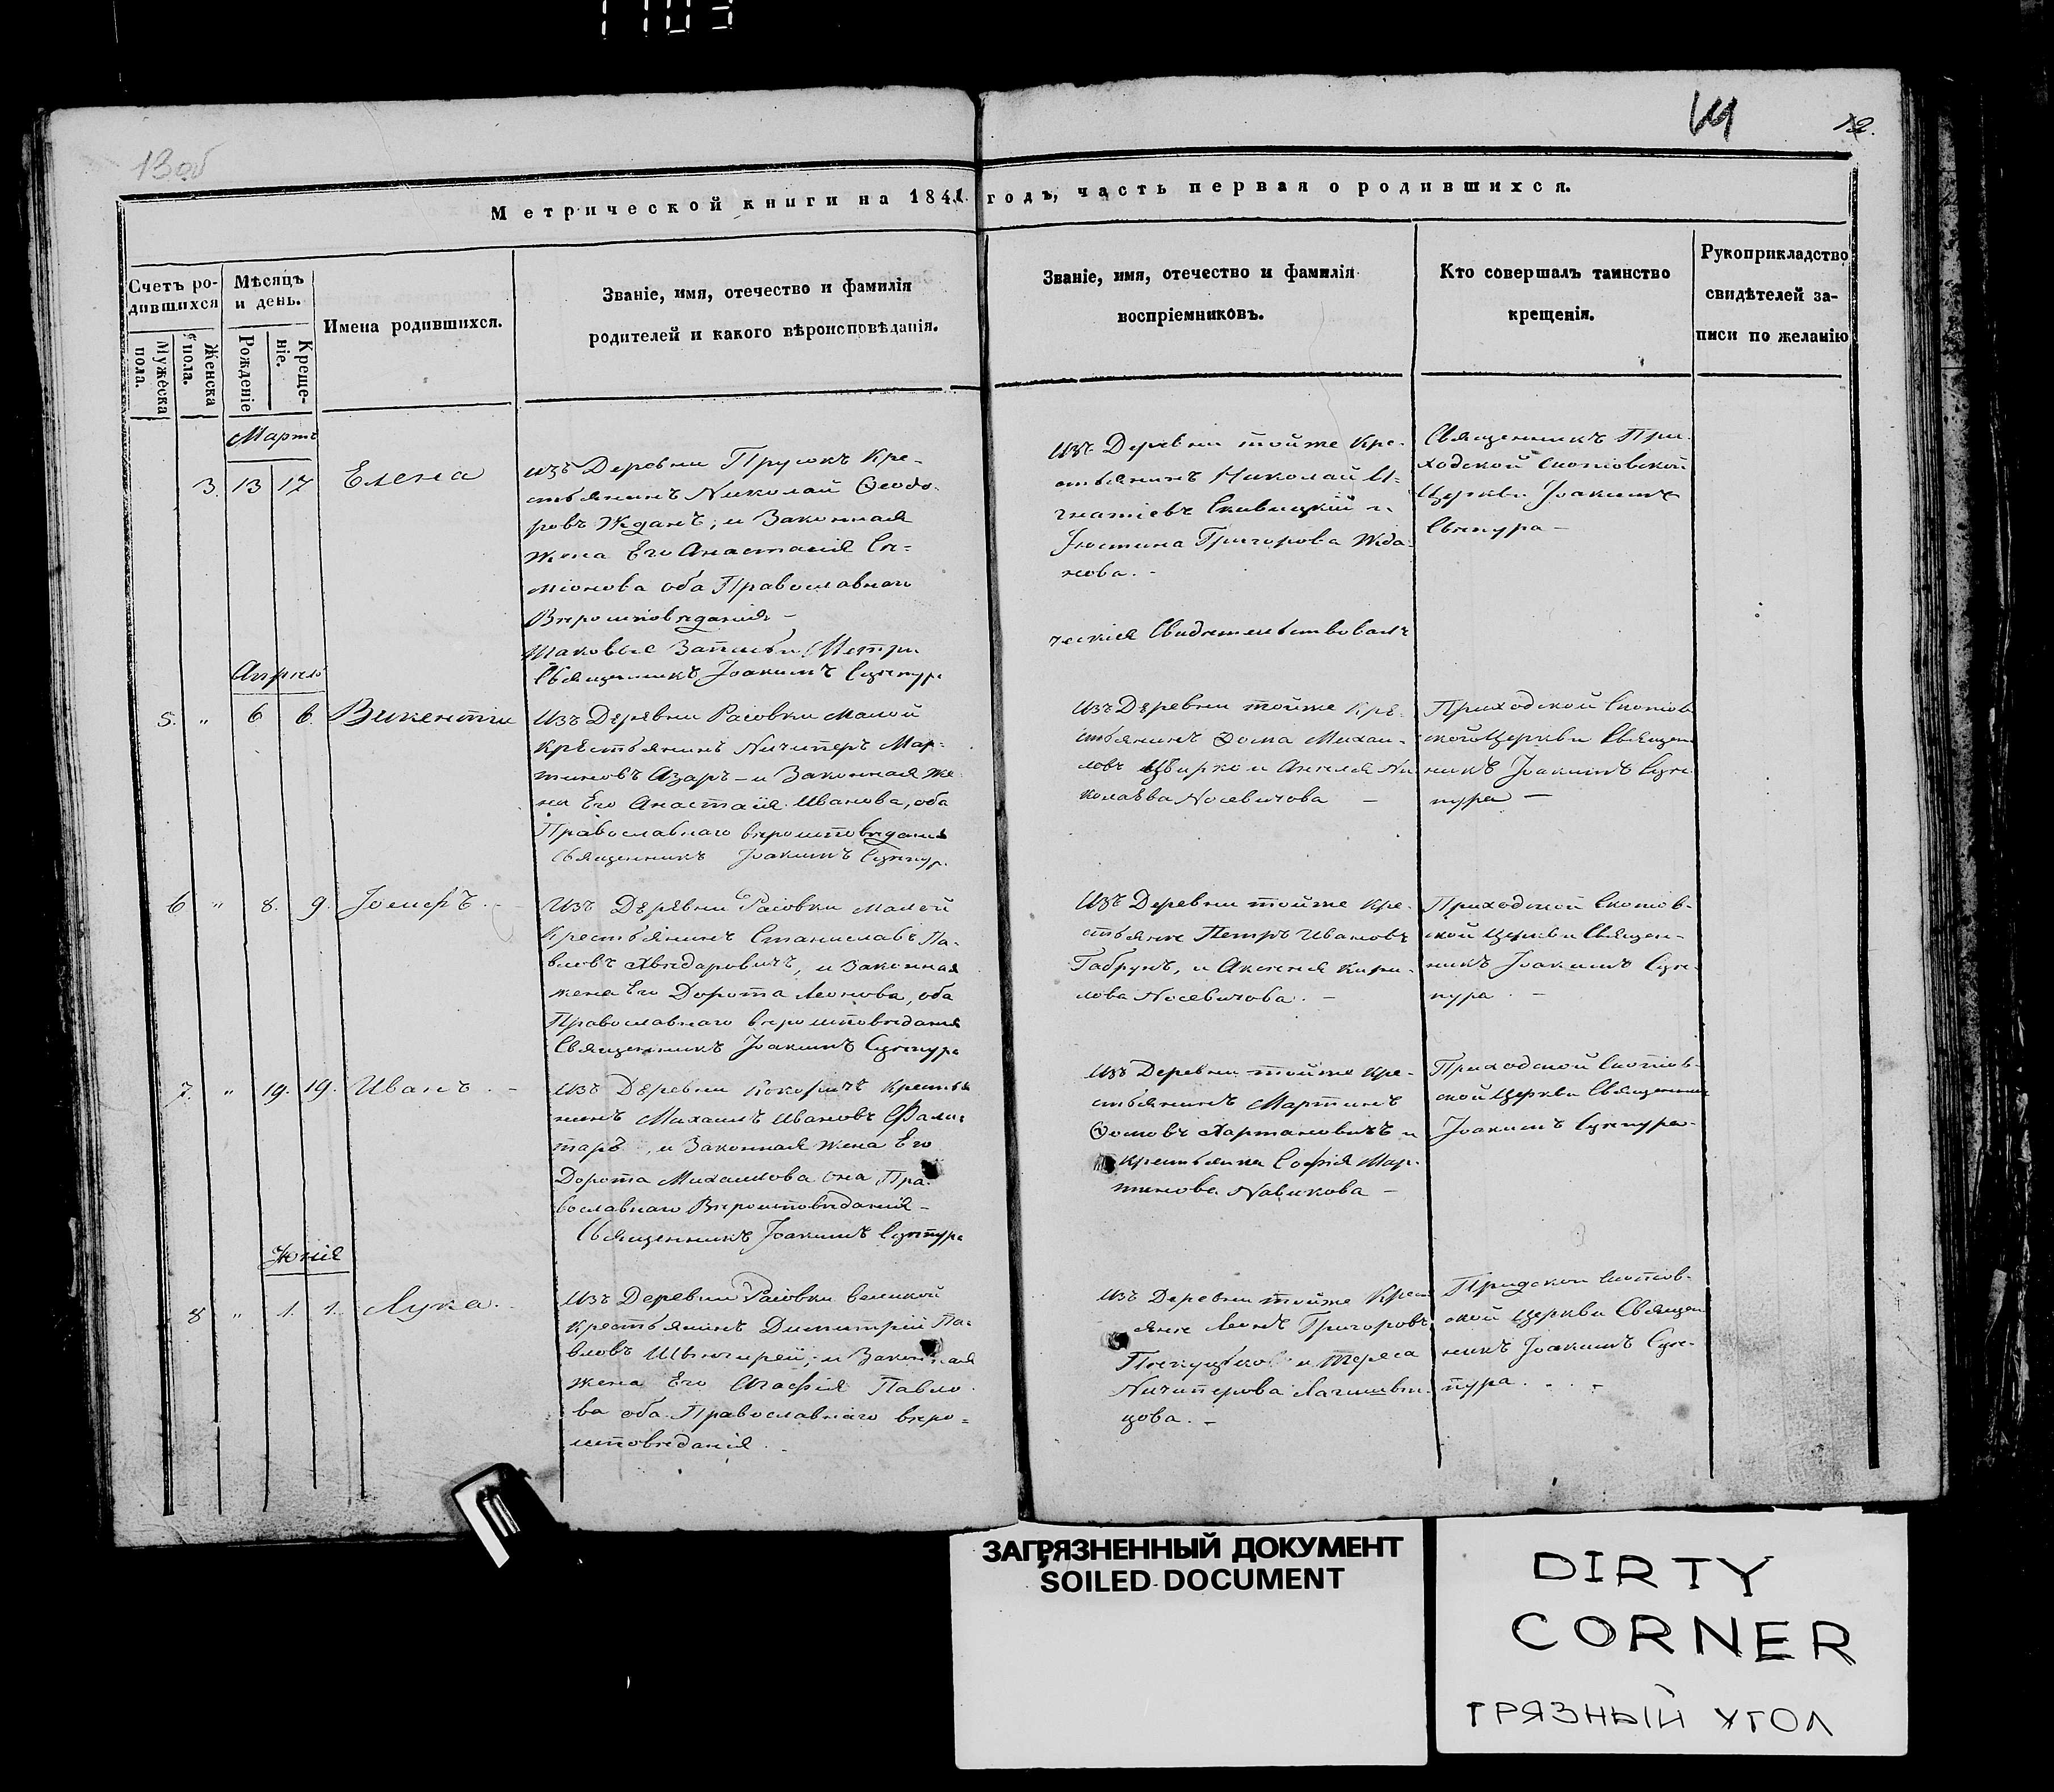 1103
13 об
12.
Метрической книги на 1841 годъ, часть первая о родившихся.
Счетъ ро-
дившихся
Мѣсяцъ
и день.
Имена родившихся.
Званіе, имя, отечество и фамилія
родителей и какого вѣроисповѣданія.
Званіе, имя, отечество и фамилія
воспріемниковъ.
Кто совершалъ таинство
крещенія.
Рукоприкладство
свидѣтелей за-
писи по желанію
Мужеска
пола.
Женска
пола.
Рожденіе
Креще-
ніе.
Мартъ
3. 13 17 Елена
Изъ Деревни Прусокъ Кре-
стьянинъ Николай Ѳеодо-
ровъ Жданъ, и Законная
жена Его Анастасія Си-
міонова оба Православнаго
Вѣроисповѣданія –
Изъ Деревни тойже Кре-
стьянинъ Николай И-
гнатіевъ Сквицкій и
Іюстина Григорова Жда-
нова. –
Священникъ При-
ходской Скотовской
Церкви Іоакимъ
Сѣнура –
Таковые Записи Метри
ческія Свидетельствовалъ
Священникъ Іоакимъ
Апрель
5. " 6 6. Викентій
Изъ Деревни Расовки Малой
Крестьянинъ Ничиперъ Мар-
тиновъ Азаръ – и Законная же
на Его Анастасія Иванова, оба
Православнаго вѣроисповѣданія
Священникъ Іоакимъ
Изъ Деревни тойже Кре-
стьянинъ Ѳома Михаи-
ловъ Цвирко и Ангеля Ни
колаева Носевичова –
Приходской Скотов
ской Церкви Священ
никъ Іоакимъ
6 " 8. 9. Іосифъ. –
Изъ Деревни Расовки Малой
Крестьянинъ Станиславъ Па-
вловъ Хвѣдаровичъ, и Законная
жена Его Дорота Леонова, оба
Православнаго вѣроисповѣданія
Священникъ Іоакимъ
Изъ Деревни тойже Кре-
стьяне Петръ Ивановъ
Габрунъ, и Аксеня Кири-
лова Носевичова. –
Приходской Скотов-
ской Церкви Священ-
никъ Іоакимъ
7. " 19. 19. Иванъ. –
Изъ Деревни Кокоричъ Крестья
нинъ Михаилъ Ивановъ
таръ, и Законная жена Его
Дорота Михаилова она Пра-
вославнаго Вѣроисповѣданія –
Священникъ Іоакимъ
Изъ Деревни тойже Кре-
стьянинъ Мартинъ
Ѳомовъ Хартановичъ и
Крестьянка Софія Мар-
тинова Навикова –
Приходской Скотов-
ской Церкви Священник
Іоакимъ
Юнія
8 " 1. 1. Лука. –
Изъ Деревни Расовки великой
Крестьянинъ Димитрій Па-
вловъ и Законная
жена Его Агафія Павло
ва оба Православнаго вѣро-
исповѣданія. –
Изъ Деревни тойже Крест
яне Леонъ Григоровъ
и Тереса
Ничиперова
цова. –
Придской Скотов-
ской Церкви Священ
никъ Іоакимъ
ЗАГРЯЗНЕННЫЙ ДОКУМЕНТ
SOILED DOCUMENT
DIRTY
CORNER
ГРЯЗНЫЙ УГОЛ